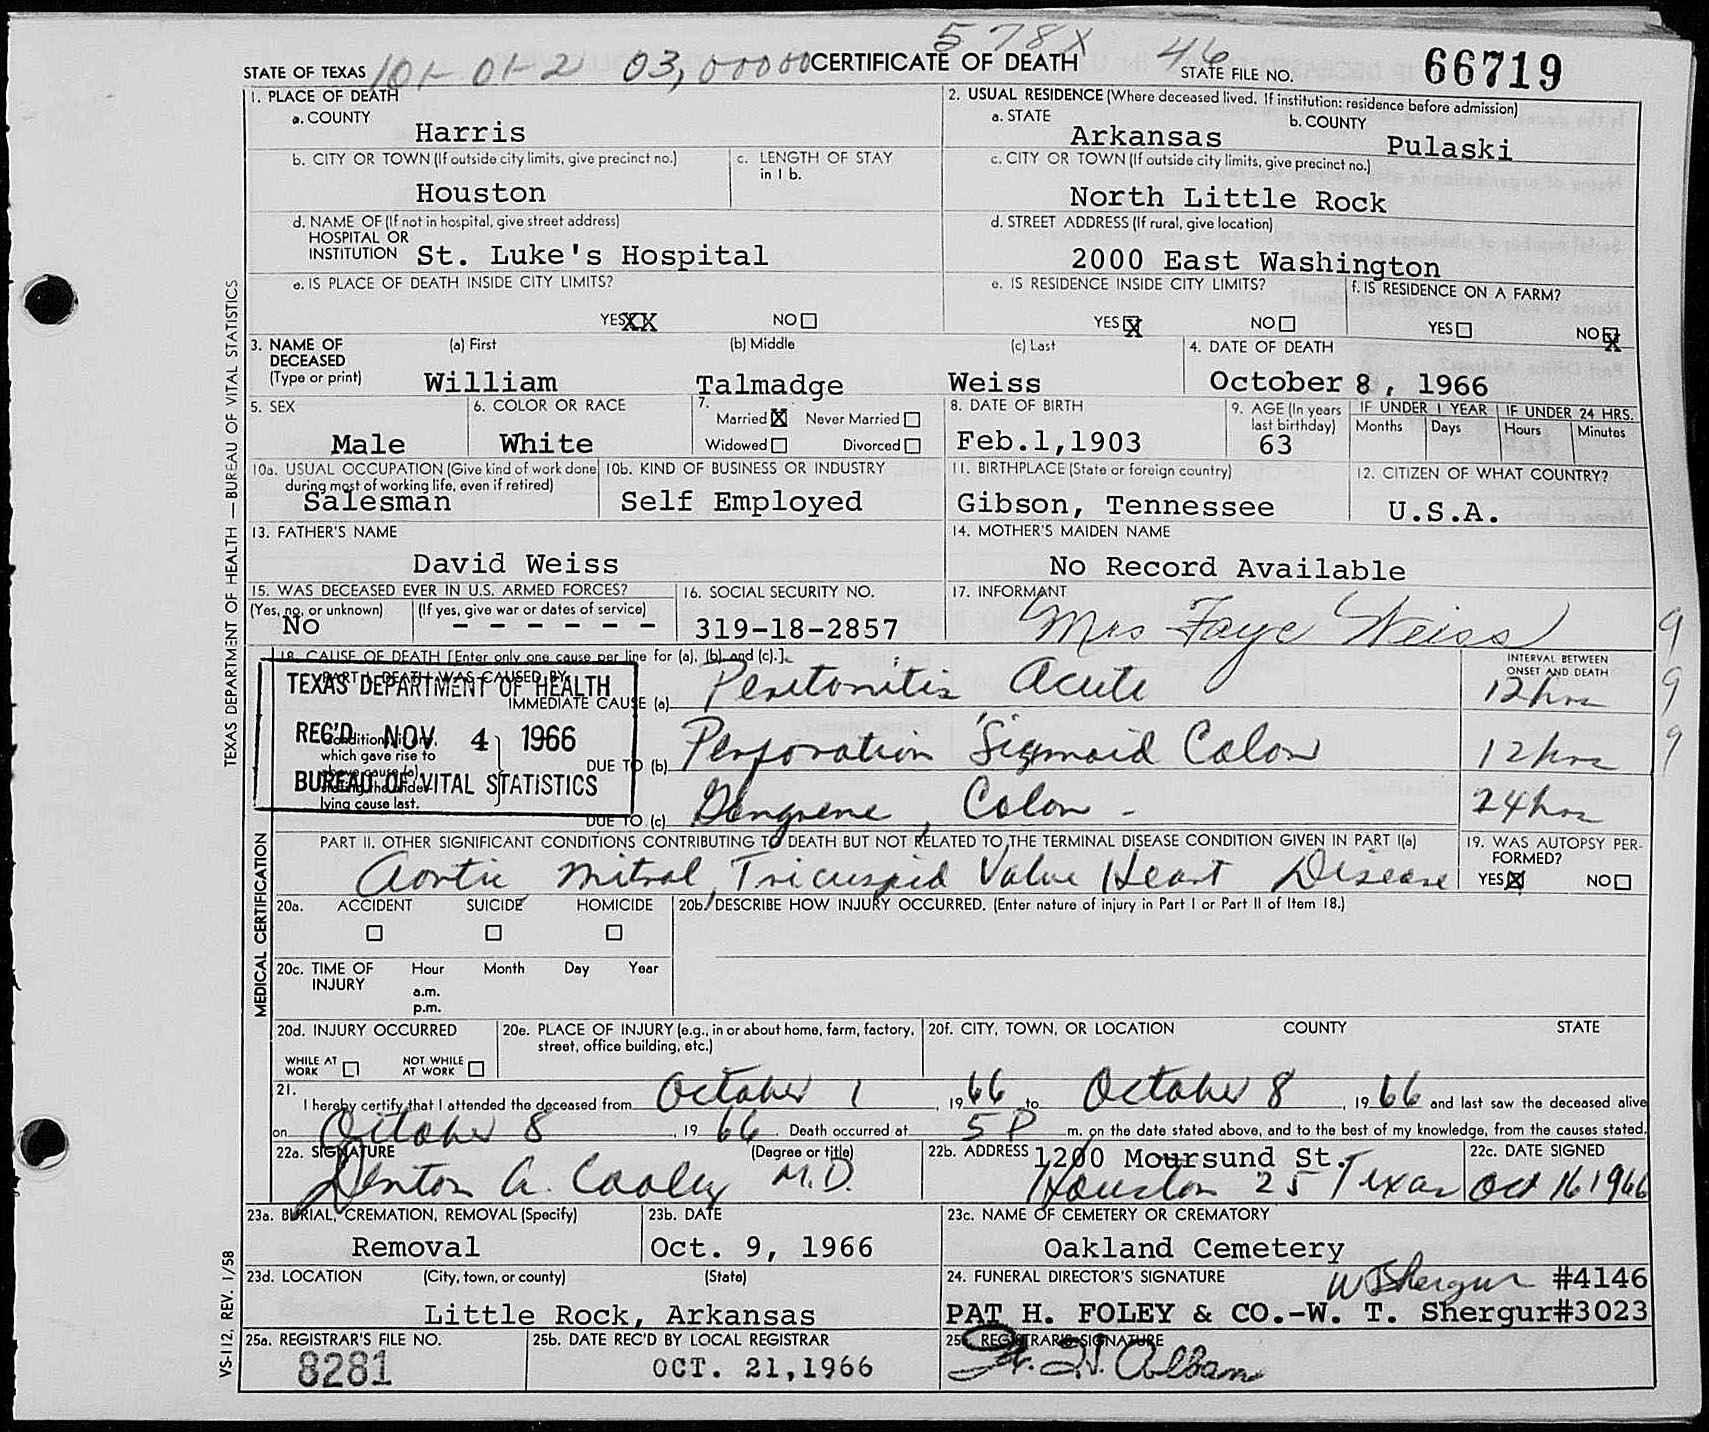 578X 46
STATE OF TEXAS 101-01-2 03,00000 CERTIFICATE OF DEATH STATE FILE NO. 66719
1. PLACE OF DEATH
a. COUNTY
Harris
2. USUAL RESIDENCE (Where deceased lived. If institution: residence before admission)
a. STATE b. COUNTY
Arkansas Pulaski
b. CITY OR TOWN (If outside city limits, give precinct no.)
Houston
c. LENGTH OF STAY
in 1 b.
c. CITY OR TOWN (If outside city limits, give precinct no.)
North Little Rock
d. NAME OF (If not in hospital, give street address)
HOSPITAL OR
INSTITUTION St. Luke's Hospital
d. STREET ADDRESS (If rural, give location)
2000 East Washington
e. IS PLACE OF DEATH INSIDE CITY LIMITS?
YES XX NO
e. IS RESIDENCE INSIDE CITY LIMITS?
YES X NO
f. IS RESIDENCE ON A FARM?
YES NO X
3. NAME OF
DECEASED
(Type or print)
(a) First (b) Middle (c) Last
William Talmadge Weiss
4. DATE OF DEATH
October 8, 1966
5. SEX
Male
6. COLOR OR RACE
White
7.
Married X Never Married
Widowed Divorced
8. DATE OF BIRTH
Feb.1,1903
9. AGE (In years
last birthday)
63
IF UNDER 1 YEAR IF UNDER 24 HRS.
Months Days Hours Minutes
10a. USUAL OCCUPATION (Give kind of work done
during most of working life, even if retired)
Salesman
10b. KIND OF BUSINESS OR INDUSTRY
Self Employed
11. BIRTHPLACE (State or foreign country)
Gibson, Tennessee
12. CITIZEN OF WHAT COUNTRY?
U.S.A.
13. FATHER'S NAME
David Weiss
14. MOTHER'S MAIDEN NAME
No Record Available
15. WAS DECEASED EVER IN U.S. ARMED FORCES?
(Yes, no, or unknown) (If yes, give war or dates of service)
No - - - - - -
16. SOCIAL SECURITY NO.
319-18-2857
17. INFORMANT
Mrs Faye Weiss
9
18. CAUSE OF DEATH [Enter only one cause per line for (a), (b), and (c).]
PART I. DEATH WAS CAUSED BY:
IMMEDIATE CAUSE (a) Peritonitis Acute
INTERVAL BETWEEN
ONSET AND DEATH
12 hrs
9
Conditions, if any,
which gave rise to
above cause (a),
stating the under-
lying cause last.
DUE TO (b) Perforation Sigmoid Colon
12 hrs
9
DUE TO (c) Gangrene, Colon -
24 hrs
TEXAS DEPARTMENT OF HEALTH
REC'D NOV 4 1966
BUREAU OF VITAL STATISTICS
PART II. OTHER SIGNIFICANT CONDITIONS CONTRIBUTING TO DEATH BUT NOT RELATED TO THE TERMINAL DISEASE CONDITION GIVEN IN PART I(a)
Aortic, Mitral, Tricuspid Valve Heart Disease
19. WAS AUTOPSY PER-
FORMED?
YES X NO
20a. ACCIDENT SUICIDE HOMICIDE
20b. DESCRIBE HOW INJURY OCCURRED. (Enter nature of injury in Part I or Part II of Item 18.)
20c. TIME OF
INJURY
Hour Month Day Year
a.m.
p.m.
20d. INJURY OCCURRED
WHILE AT
WORK
NOT WHILE
AT WORK
20e. PLACE OF INJURY (e.g., in or about home, farm, factory,
street, office building, etc.)
20f. CITY, TOWN, OR LOCATION COUNTY STATE
21.
I hereby certify that I attended the deceased from October 1, 1966 to October 8, 1966 and last saw the deceased alive
on October 8, 1966. Death occurred at 5 P m. on the date stated above, and to the best of my knowledge, from the causes stated.
22a. SIGNATURE (Degree or title)
Denton A. Cooley M.D.
22b. ADDRESS 1200 Moursund St.
Houston 25 Texas
22c. DATE SIGNED
Oct 16 1966
23a. BURIAL, CREMATION, REMOVAL (Specify)
Removal
23b. DATE
Oct. 9, 1966
23c. NAME OF CEMETERY OR CREMATORY
Oakland Cemetery
23d. LOCATION (City, town, or county) (State)
Little Rock, Arkansas
24. FUNERAL DIRECTOR'S SIGNATURE W T Shergur #4146
PAT H. FOLEY & CO.-W. T. Shergur#3023
25a. REGISTRAR'S FILE NO.
8281
25b. DATE REC'D BY LOCAL REGISTRAR
OCT. 21,1966
25c. REGISTRAR'S SIGNATURE
TEXAS DEPARTMENT OF HEALTH — BUREAU OF VITAL STATISTICS
MEDICAL CERTIFICATION
VS-112, REV. 1/58